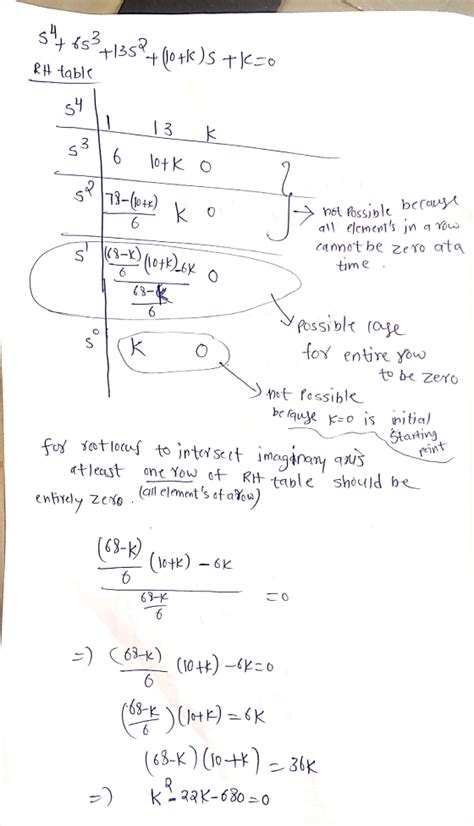 s⁴ + 6s³ + 13s² + (10+K)s + K = 0
RH table
s⁴ 1 13 K
s³ 6 10+K 0
s² 78-(10+K)/6 K 0
→ not Possible because
all element's in a row
cannot be zero at a
time.
s¹ ((68-K)/6 (10+K) - 6K)/((68-K)/6) 0
Possible case
for entire row
to be zero
s⁰ K 0
not Possible
because K=0 is initial
Starting
point
for rootlocus to intersect imaginary axis
atleast one row of RH table should be
entirely zero. (all element's of a row)
((68-K)/6 (10+K) - 6K)/((68-K)/6) = 0
=) (68-K)/6 (10+K) - 6K = 0
(68-K/6) (10+K) = 6K
(68-K) (10+K) = 36K
=) K² - 22K - 680 = 0